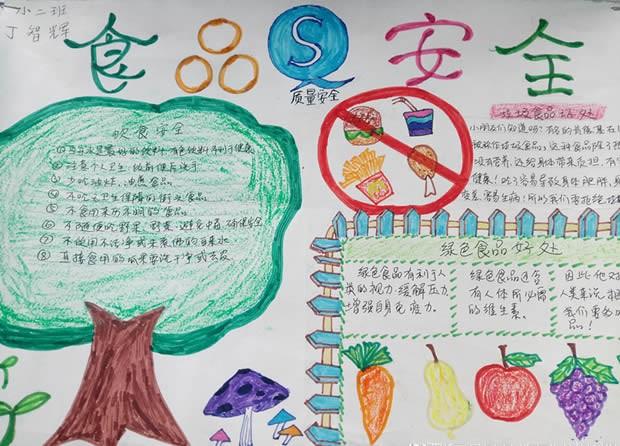 小二班
丁智辉
食品S安全
质量安全
饮食安全
①白开水是最好的饮料,有色饮料不利于健康
②注意个人卫生,饭前便后洗手
③少吃油炸、油煎食品
④不吃无卫生保障的街头食品
⑤不食用来历不明的食品
⑥不随便吃野菜、野果,避免中毒,确保安全
⑦不饮用不洁净或未煮沸的自来水
⑧直接食用的瓜果要洗干净或去皮
垃圾食品坏处
小朋友们知道吗?有的
被称作垃圾食品,这种食品除了
没有营养,还给身体带来负担,有
健康!吃了容易导致身体肥胖,
容易生病!所以我们要拒绝垃
绿色食品好处
绿色食品有利于人
类的视力,缓解压力,
增强自身免疫力。
绿色食品还含
有人体所必需
的维生素。
因此,他对
人类来说
我们要多吃
品!